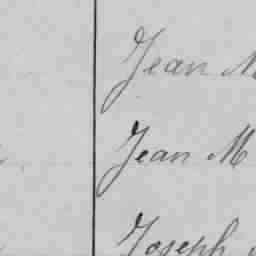 Jean M
Jean M
Joseph